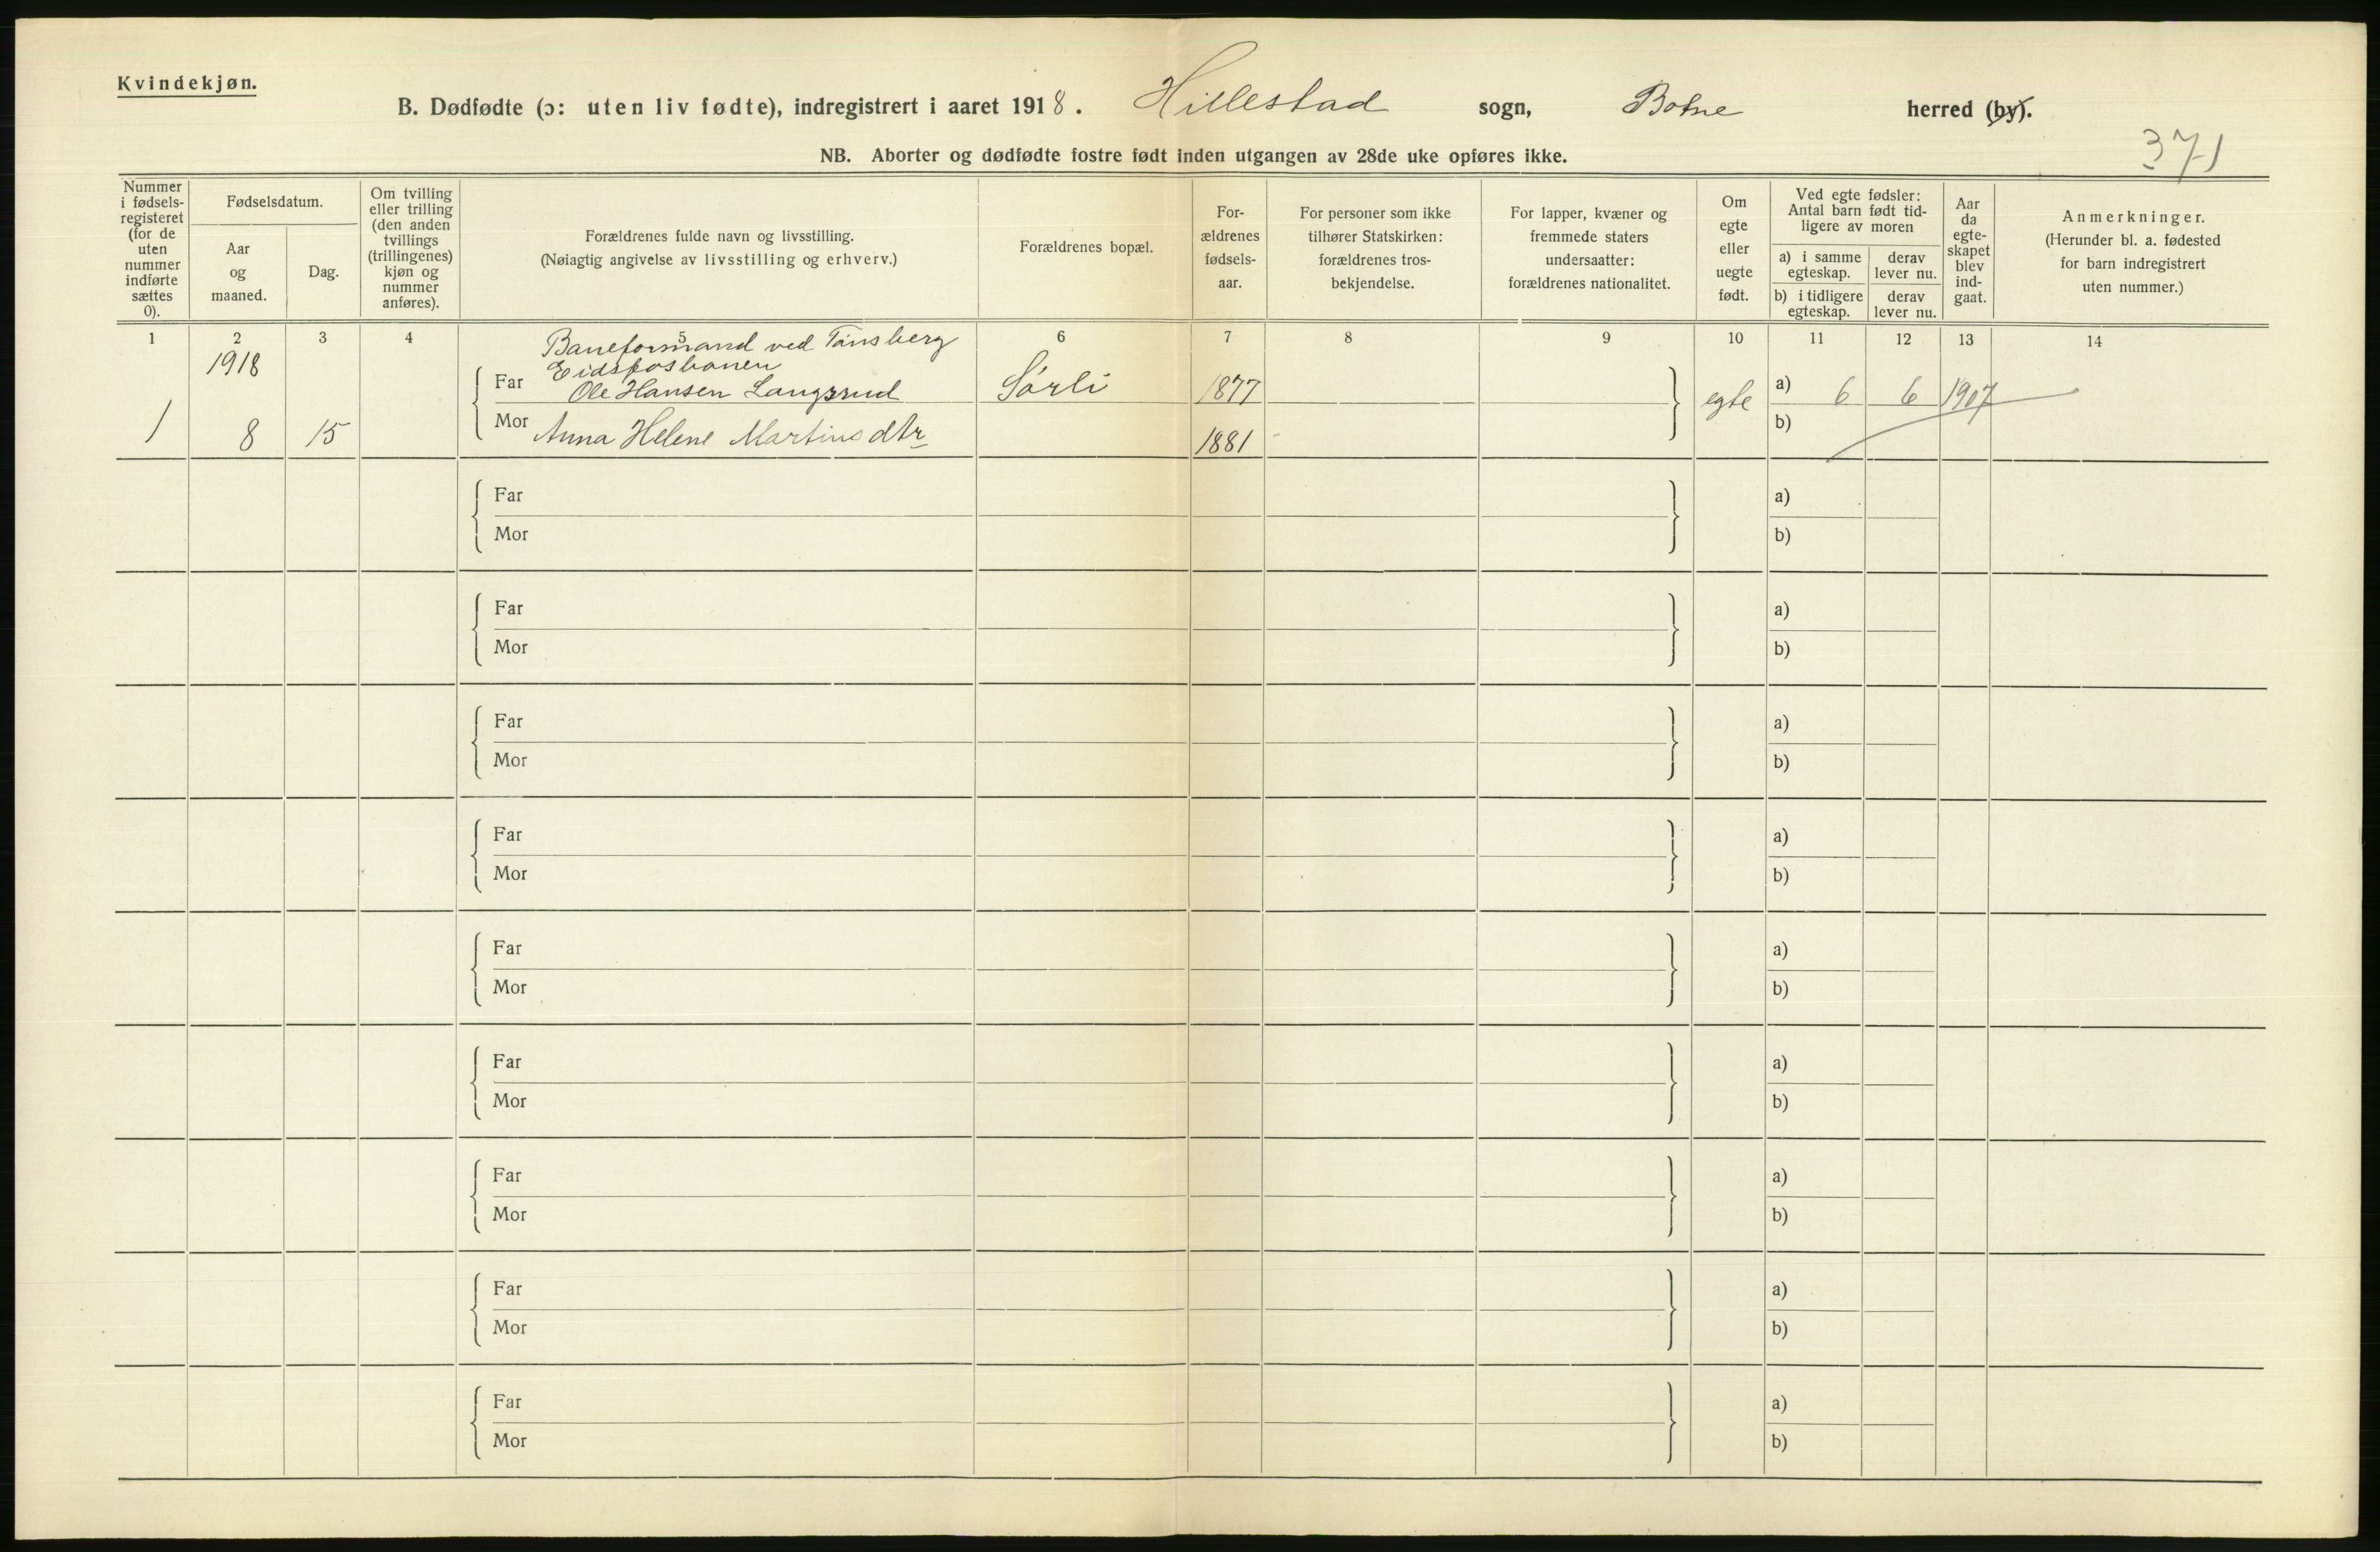 Kvindekjøn.
B. Dødfødte (ɔ: uten liv fødte), indregistrert i aaret 1918. Hillestad sogn, Botne herred (by).
371
NB. Aborter og dødfødte fostre født inden utgangen av 28de uke opføres ikke.
Nummer i fødsels-registeret (for de uten nummer indførte sættes 0).
Fødselsdatum.
Aar og maaned.
Dag.
Om tvilling eller trilling (den anden tvillings (trillingenes) kjøn og nummer anføres).
Forældrenes fulde navn og livsstilling.
(Nøiagtig angivelse av livsstilling og erhverv.)
Forældrenes bopæl.
For-ældrenes fødsels-aar.
For personer som ikke tilhører Statskirken: forældrenes tros-bekjendelse.
For lapper, kvæner og fremmede staters undersaatter: forældrenes nationalitet.
Om egte eller uegte født.
Ved egte fødsler: Antal barn født tid-ligere av moren
a) i samme egteskap.
derav lever nu.
b) i tidligere egteskap.
derav lever nu.
Aar da egte-skapet blev ind-gaat.
Anmerkninger.
(Herunder bl. a. fødested for barn indregistrert uten nummer.)
1 2 3 4 5 6 7 8 9 10 11 12 13 14
Baneformand ved Tønsberg
1918 Eidsfosbanen
Far Ole Hansen Langsrud Sørli 1877 egte a) 6 6 1907
1 8 15 Mor Anna Helene Martinsdtr 1881 b)
Far a)
Mor b)
Far a)
Mor b)
Far a)
Mor b)
Far a)
Mor b)
Far a)
Mor b)
Far a)
Mor b)
Far a)
Mor b)
Far a)
Mor b)
Far a)
Mor b)